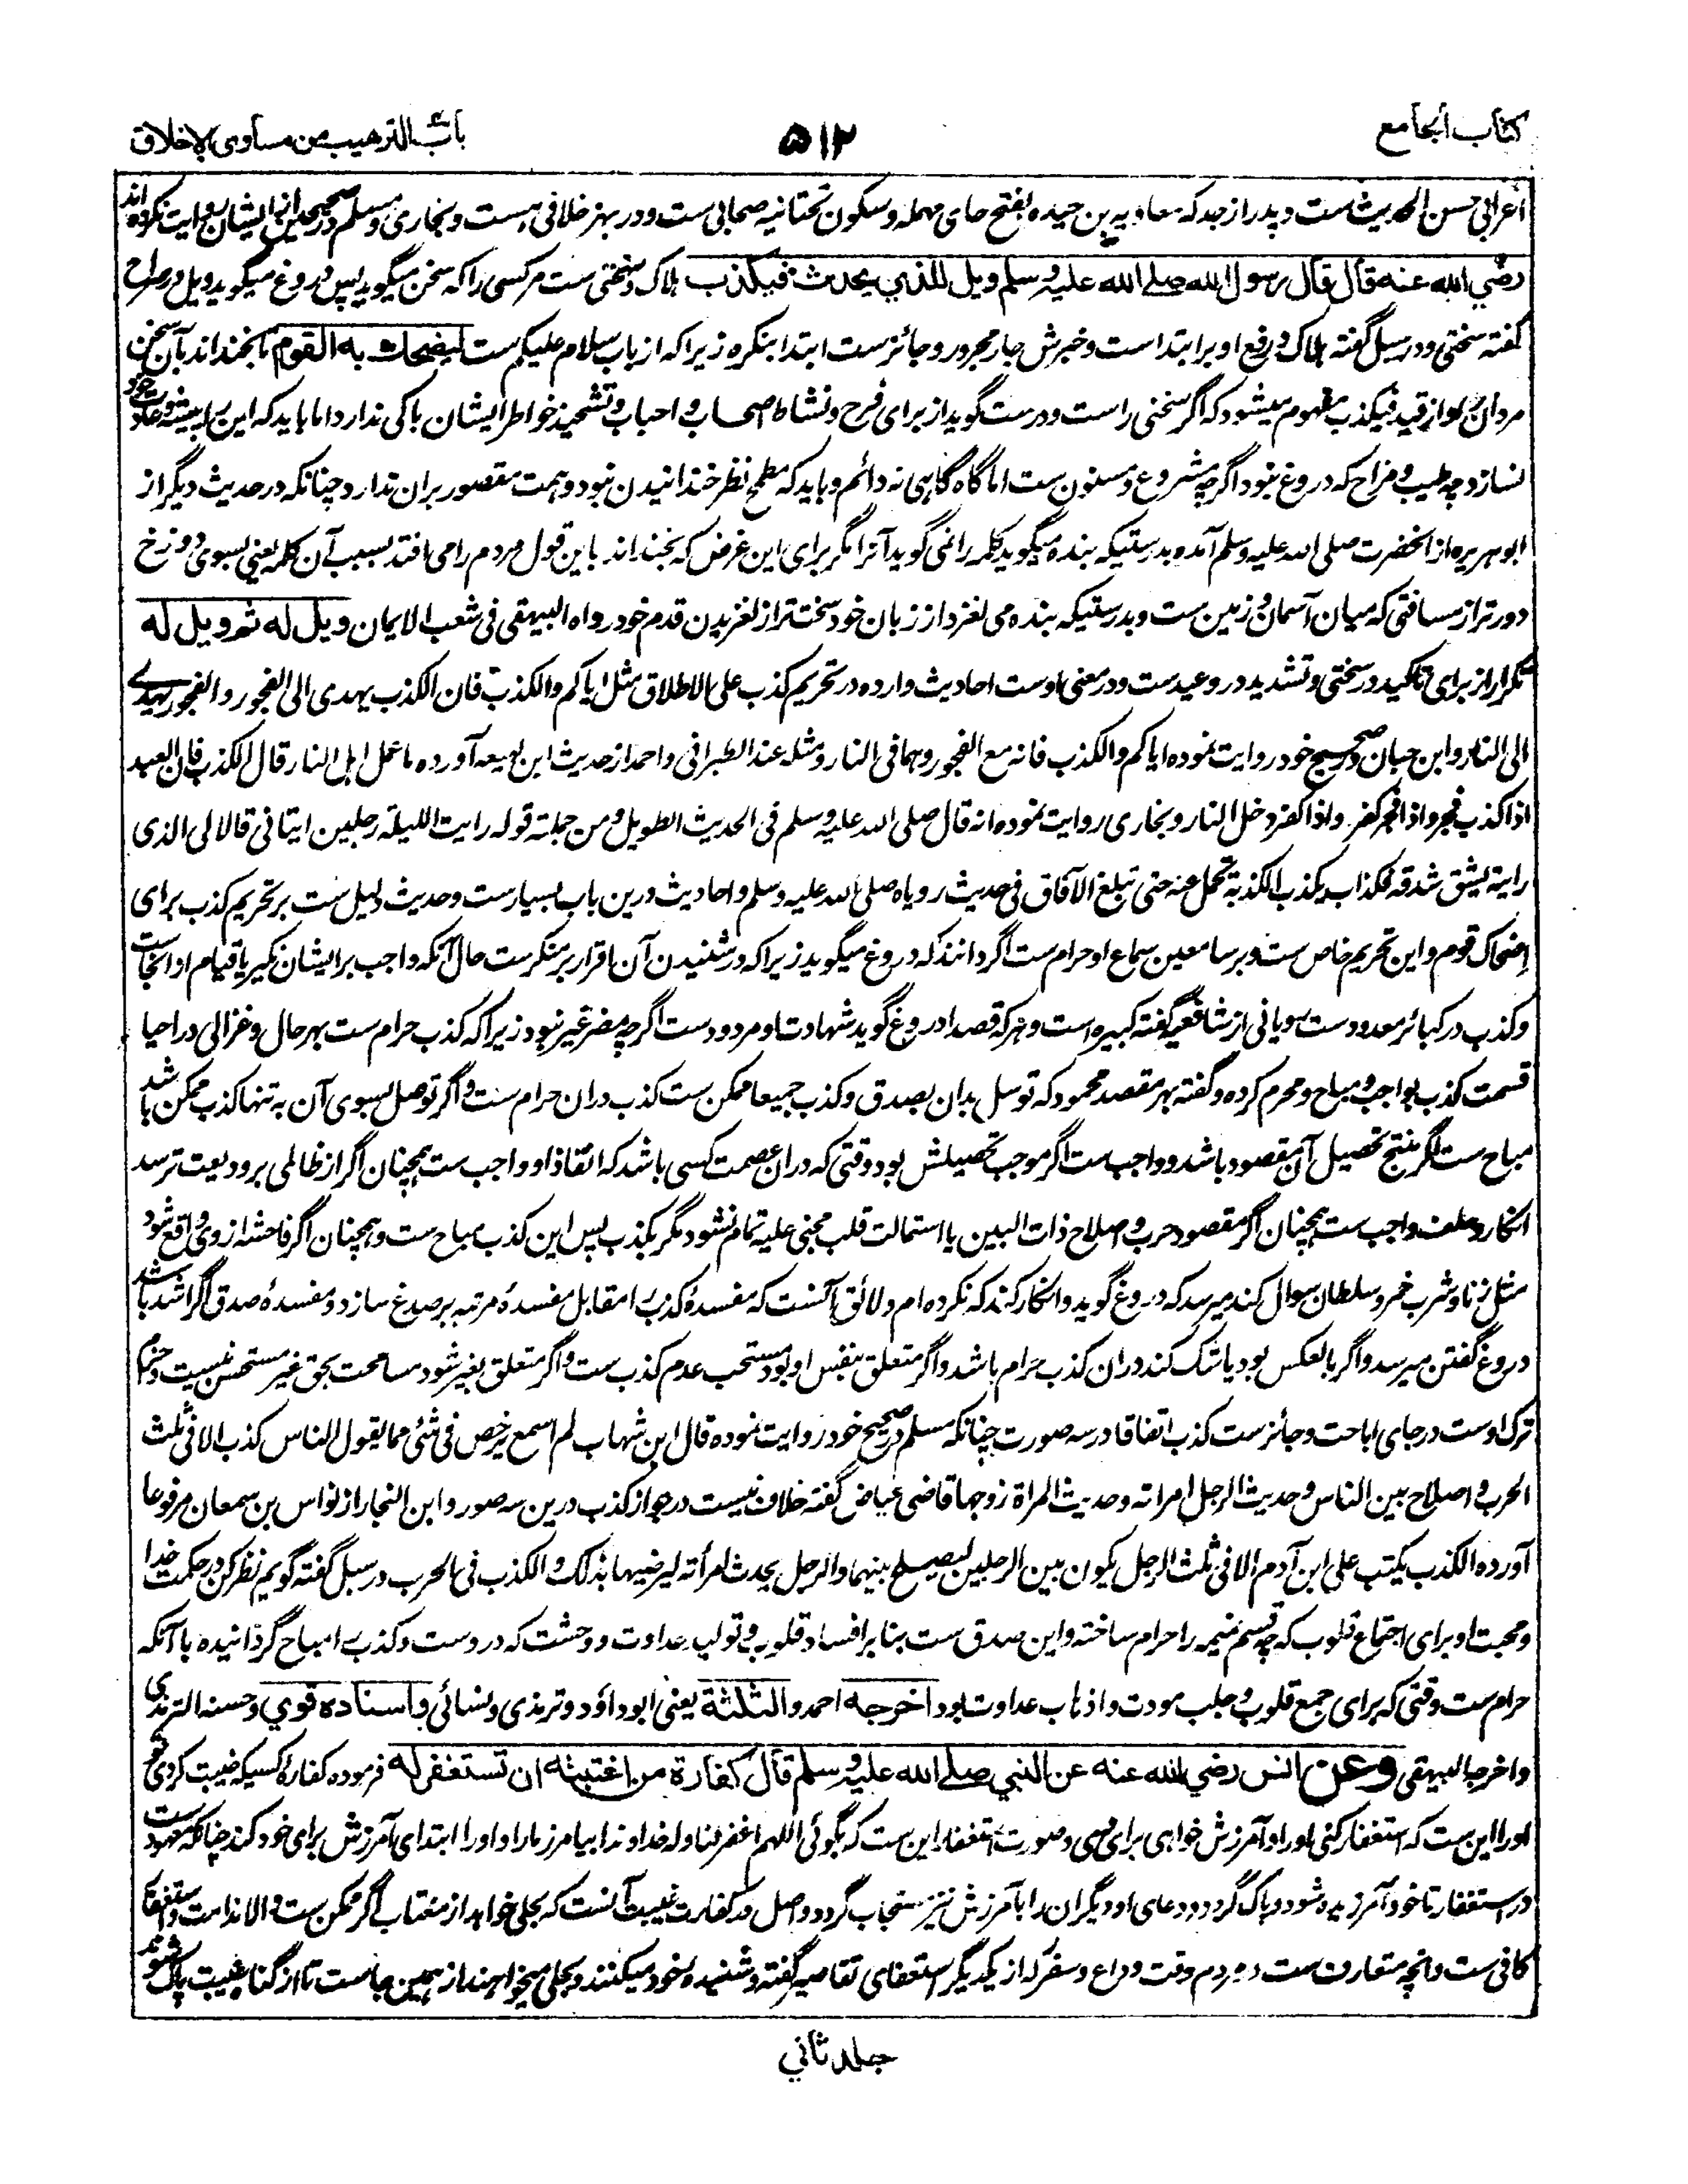 کتاب الجامع
۵۱۲
باب الترهیب من مساوی الاخلاق
اعرابی حسن الحدیث ست و پدر از جد که معاویه بن حیده بفتح حای مهمله و سکون تحتانیه صحابی ست و در بهز خلافی هست و بخاری و مسلم در صحیحین از ایشان روایت نکرده اند
رضي الله عنه قال قال رسول الله صلے الله علیه وسلم ویل للذي یحدث فیکذب هلاک و سختی ست مر کسی را که سخن میگوید پس دروغ میگوید ویل در صراح
گفته سختی و در سبل گفته هلاک و رفع او بر ابتداست و خبرش جار مجرور و جائزست ابتدا بنکره زیرا که از باب سلام علیکم ست لیضحك به القوم تا بخنداند بآن سخن
مردان را و از قید فیکذب مفهوم میشود که اگر سخنی راست و درست گوید از برای فرح و نشاط اصحاب و احباب و تشحیذ خواطر ایشان باکی ندارد اما باید که این را پیشه و عادت خود
نسازد چه طیب و مزاح که دروغ نبود اگرچه مشروع و مسنون ست اما گاه گاهی نه دائم و باید که مطمح نظر خندانیدن نبود و همت مقصور بران ندارد چنانکه در حدیث دیگر از
ابوهریره از انحضرت صلی الله علیه وسلم آمده بدرستیکه بنده میگوید کلمه را نمی گوید آنرا مگر برای این غرض که بخنداند باین قول مردم را می افتد بسبب آن کلمه یعنی بسوی دوزخ
دورتر از مسافتی که میان آسمان و زمین ست و بدرستیکه بنده می لغزد از زبان خود سخت تر از لغزیدن قدم خود رواه البیهقی فی شعب الایمان ویل له ثم ویل له
تکرار از برای تاکید در سختی و تشدید در وعید ست و در معنی اوست احادیث وارده در تحریم کذب علی الاطلاق مثل ایاکم والکذب فان الکذب یهدی الی الفجور و الفجور یهدے
الی النار و ابن حبان در صحیح خود روایت نموده ایاکم والکذب فانه مع الفجور وهما فی النار و مثله عند الطبرانی و احمد از حدیث ابن لهیعه آورده ما عمل اهل النار قال الکذب فان العبد
اذا کذب فجر واذا فجر کفر واذا کفر دخل النار و بخاری روایت نموده انه قال صلی الله علیه وسلم فی الحدیث الطویل و من جملته قوله رایت اللیلة رجلین اتیانی قالا لی الذی
رایته یشق شدقه فکذاب یکذب الکذبة تحمل عنه حتی تبلغ الآفاق فی حدیث رویاه صلی الله علیه وسلم و احادیث درین باب بسیارست و حدیث دلیل ست بر تحریم کذب برای
اضحاک قوم و این تحریم خاص ست و بر سامعین سماع او حرام ست اگر دانند که دروغ میگوید زیرا که در شنیدن آن اقرار بر منکرست حال آنکه واجب بر ایشان نکیر یا قیام او انجاست
و کذب در کبائر معدودست رویانی از شافعیه گفته کبیره است و هر که قصدا دروغ گوید شهادت او مردودست اگرچه مضر غیر نبود زیرا که کذب حرام ست بهر حال و غزالی در احیا
قسمت کذب بواجب و مباح و محرم کرده و گفته بهر مقصد محمود که توسل بدان بصدق و کذب جمیعا ممکن ست کذب دران حرام ست و اگر توصل بسوی آن به تنها کذب ممکن باشد
مباح ست اگر منتج تحصیل آن مقصود باشد و واجب ست اگر موجب تحصیلش بود وقتی که دران عصمت کسی باشد که انقاذ او واجب ست همچنان اگر از ظالمی بر ودیعت ترسد
انکار و حلف واجب ست همچنان اگر مقصود حرب و اصلاح ذات البین یا استمالت قلب مجنی علیه تمام نشود مگر بکذب پس این کذب مباح ست و همچنان اگر فاحشه از وی واقع شود
مثل زنا و شرب خمر و سلطان سوال کند میرسد که دروغ گوید و انکار کند که نکرده ام و لائق آنست که مفسدۂ کذب را مقابل مفسدۂ مرتبه بر صدق سازد و مفسدۂ صدق اگر اشد باشد
دروغ گفتن میرسد و اگر بالعکس بود یا شک کند دران کذب حرام باشد و اگر متعلق بنفس او بود مستحب عدم کذب ست و اگر متعلق بغیر شود مسامحت بحق غیر مستحسن نیست و حزم
ترک اوست در جای اباحت و جائزست کذب اتفاقا در سه صورت چنانکه مسلم در صحیح خود روایت نموده قال ابن شهاب لم اسمع یرخص فی شئی مما یقول الناس کذب الا فی ثلث
الحرب و اصلاح بین الناس و حدیث الرجل امراته و حدیث المراة زوجها قاضی عیاض گفته خلاف نیست در جواز کذب درین سه صور و ابن النجار از نواس بن سمعان مرفوعا
آورده الکذب یکتب علی ابن آدم الا فی ثلث الرجل یکون بین الرجلین لیصلح بینهما والرجل یحدث امرأته لیرضیها بذلک والکذب فی الحرب در سبل گفته گویم نظر کن در حکمت خدا
و محبت او برای اجتماع قلوب که چه قسم نمیمه را حرام ساخته و این صدق ست بنا بر افساد قلوب و تولید عداوت و وحشت که دروست و کذب را مباح گردانیده با آنکه
حرام ست وقتی که برای جمع قلوب و جلب مودت و اذهاب عداوت بود اخرجه احمد و الثلثة یعنی ابوداؤد و ترمذی و نسائی و اسناده قوي و حسنه الترمذی
و اخرجه البیهقی وعن انس رضي الله عنه عن النبي صلے الله علیه وسلم قال کفارة من اغتبته ان تستغفر له فرموده کفارۂ کسیکه غیبت کردی تو
او را این ست که استغفار کنی او را و آمرزش خواهی برای وی و صورت استغفار این ست که بگوئی اللهم اغفر لنا وله خداوندا بیامرز مارا و او را ابتدای آمرزش برای خود کند چنانکه معهودست
در استغفار تا خود آمرزیده شود و پاک گردد و دعای او دیگران را بآمرزش نیز مستجاب گردد و اصل در کفارت غیبت آنست که بحلی خواهد از مغتاب اگر ممکن ست و الا ندامت و استغفار
کافی ست و انچه متعارف ست در مردم وقت وداع و سفر که از یکدیگر استعفای تقاصیر گفته و شنیده خود میکنند و بحلی میخواهند از همین جاست تا از گناه غیبت پاک شوند
جلد ثاني